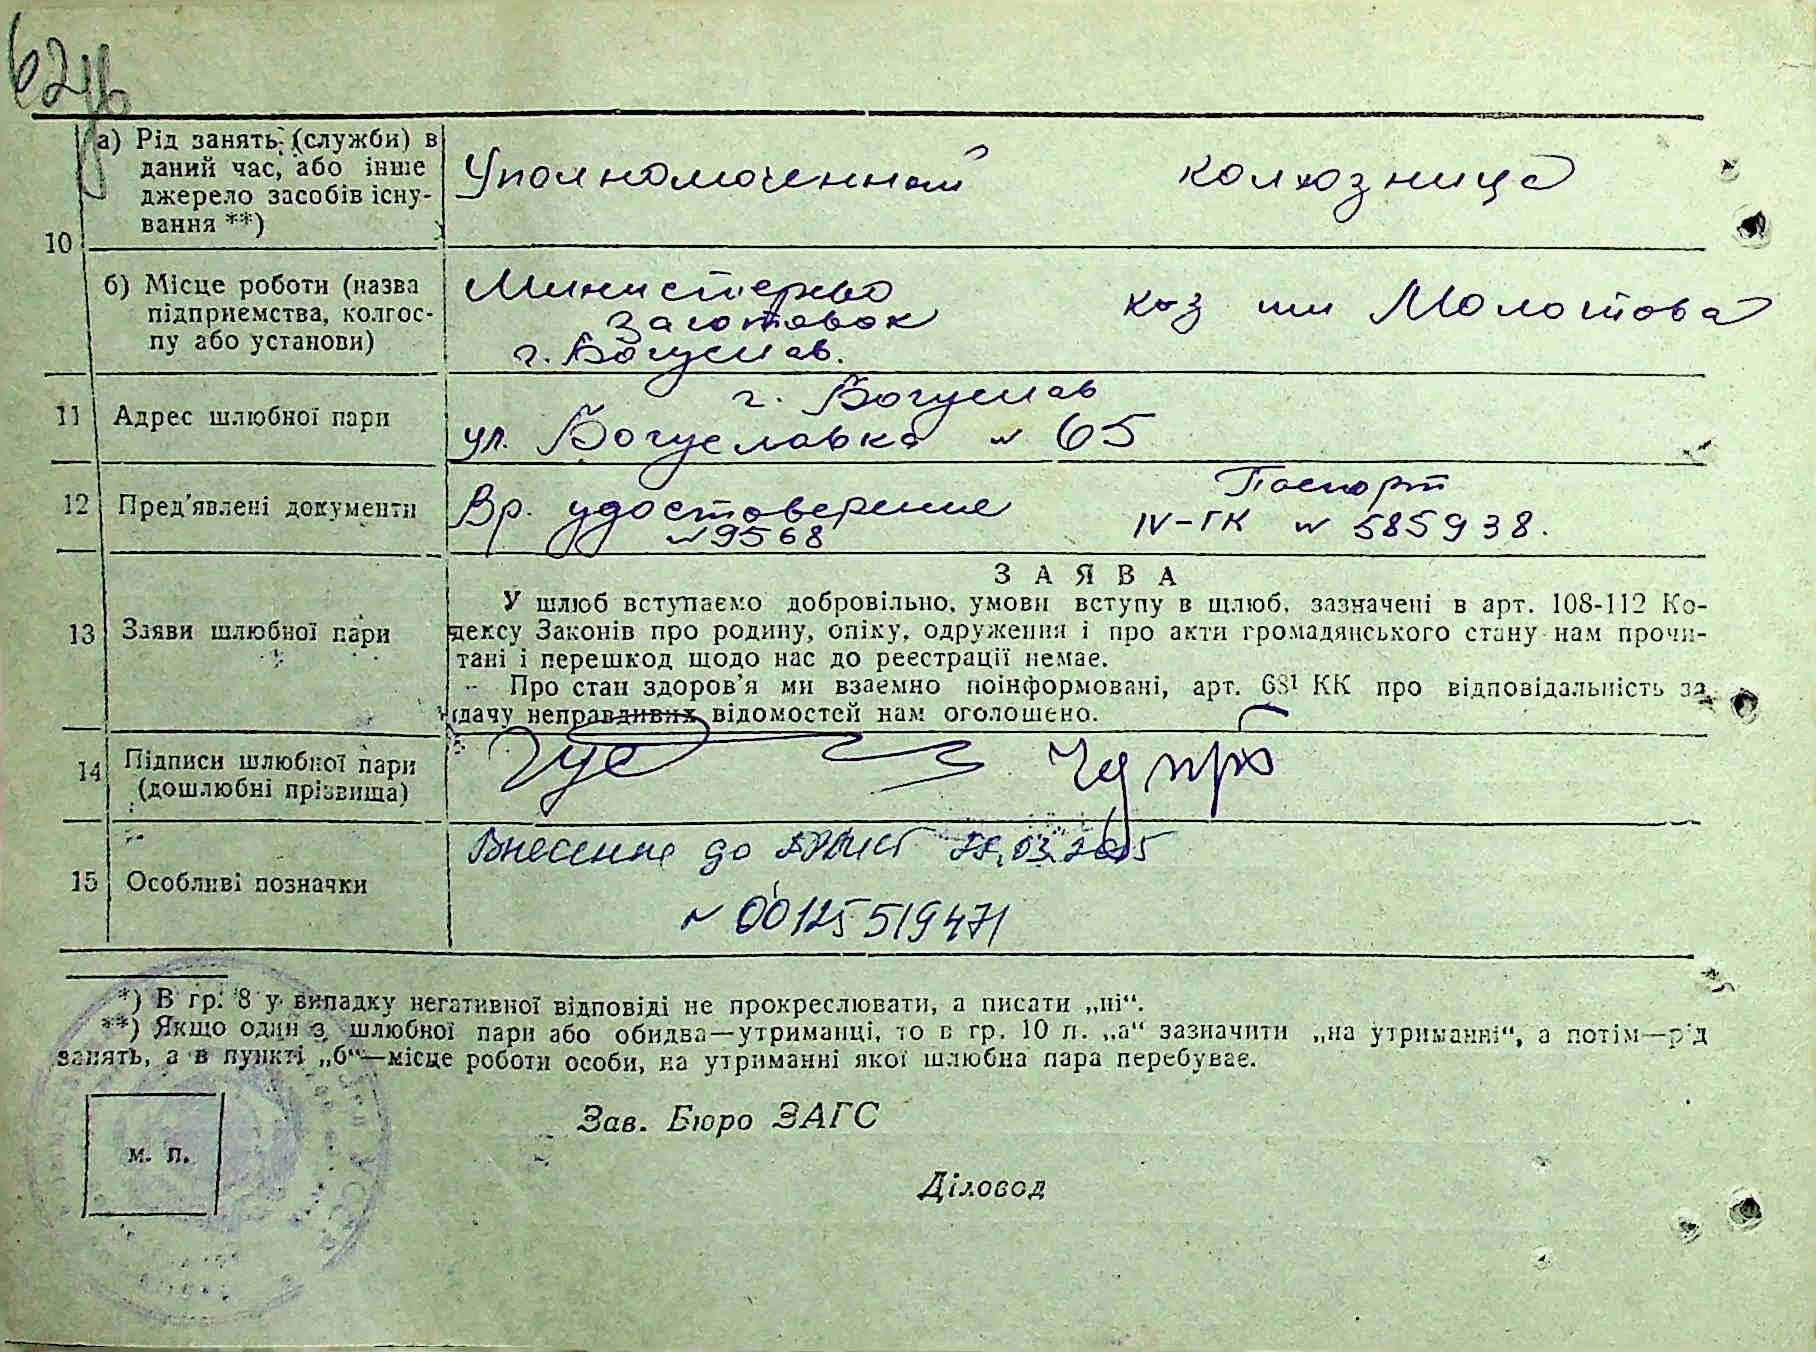 62
10
а) Рід занять (служби) в
даний час, або інше
джерело засобів існу-
вання **)
Уполномоченный колхозница
б) Місце роботи (назва
підприємства, колгос-
пу або установи)
Министерство
Заготовок
г. Богуслав.
к-з им Молотова
11 Адрес шлюбної пари
г. Богуслав
ул. Богуславка № 65
12 Пред'явлені документи
Вр. удостоверение
№ 9568
Паспорт
IV-ГК № 585938.
13 Заяви шлюбної пари
ЗАЯВА
У шлюб вступаємо добровільно, умови вступу в шлюб, зазначені в арт. 108-112 Ко-
дексу Законів про родину, опіку, одруження і про акти громадянського стану нам прочи-
тані і перешкод щодо нас до реєстрації немає.
Про стан здоров'я ми взаємно поінформовані, арт. 68¹ КК про відповідальність за
дачу неправдивих відомостей нам оголошено.
14 Підписи шлюбної пари
(дошлюбні прізвища)
Гус Чупр
15 Особливі позначки
Внесення до 03.
№ 00125519471
*) В гр. 8 у випадку негативної відповіді не прокреслювати, а писати „ні“.
**) Якщо один з шлюбної пари або обидва—утриманці, то в гр. 10 п. „а“ зазначити „на утриманні“, а потім—рід
занять, а в пункті „б“—місце роботи особи, на утриманні якої шлюбна пара перебуває.
Зав. Бюро ЗАГС
м. п.
Діловод